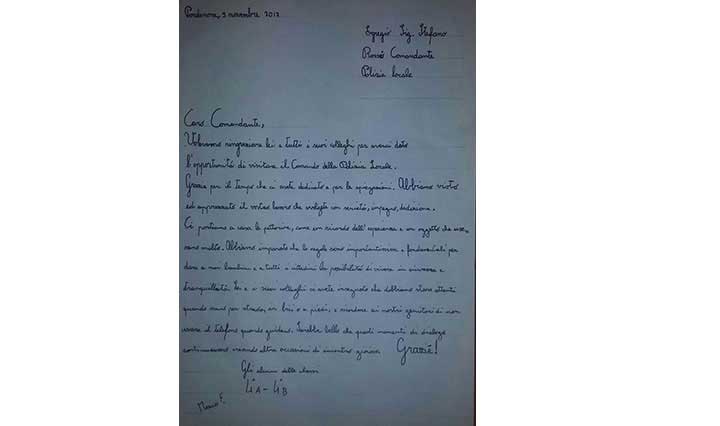 Pordenone, 9 novembre 2012
Egregio Sig. Stefano
Rossi Comandante
Polizia locale
Caro Comandante,
Vorremmo ringraziare lei e tutti i suoi colleghi per averci dato
l'opportunità di visitare il Comando della Polizia Locale.
Grazie per il tempo che ci avete dedicato e per le spiegazioni. Abbiamo visto
ed apprezzato il vostro lavoro che svolgete con serietà, impegno, dedizione.
Ci portiamo a casa la pettorina, come un ricordo dell'esperienza e un oggetto che
molto. Abbiamo imparato che le regole sono importantissime e fondamentali per
dare a noi bambini e a tutti i cittadini la possibilità di vivere in sicurezza e
tranquillità. Lei e i suoi colleghi ci avete insegnato che dobbiamo stare attenti
quando siamo per strada, in bici o a piedi, e ricordare ai nostri genitori di non
usare il telefono quando guidano. Sarebbe bello che questi momenti di dialogo
continuassero creando altre occasioni di incontro Grazie!
Gli alunni delle classi
4ªA - 4ªB
Marco F.